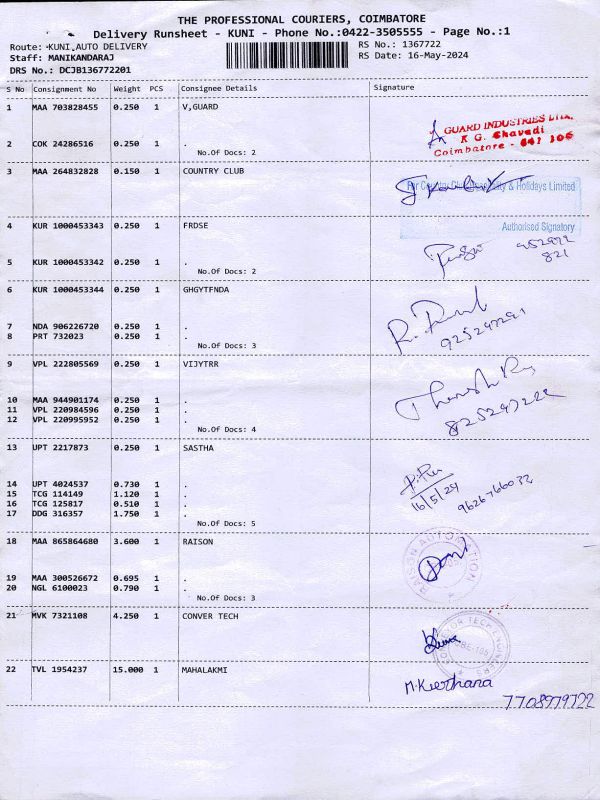 THE PROFESSIONAL COURIERS, COIMBATORE
Delivery Runsheet - KUNI - Phone No.:0422-3505555 - Page No.:1
Route: KUNI AUTO DELIVERY
RS No.: 1367722
Staff: MANIKANDARAJ
RS Date: 16-May-2024
DRS No.: DCJB136772201
S No Consignment No Weight PCS Consignee Details Signature
1 MAA 703828455 0.250 1 V,GUARD
GUARD INDUSTRIES LTD.
K G. Chavadi
Coimbatore - 641 105
2 COK 24286516 0.250 1 .
No.Of Docs: 2
3 MAA 264832828 0.150 1 COUNTRY CLUB
For Country Club Hospitality & Holidays Limited
Authorised Signatory
4 KUR 1000453343 0.250 1 FRDSE
952922
821
5 KUR 1000453342 0.250 1 .
No.Of Docs: 2
6 KUR 1000453344 0.250 1 GHGYTFNDA
7 NDA 906226720 0.250 1 .
8 PRT 732023 0.250 1 .
No.Of Docs: 3
9 VPL 222805569 0.250 1 VIJYTRR
10 MAA 944901174 0.250 1 .
11 VPL 220984596 0.250 1 .
12 VPL 220995952 0.250 1 .
No.Of Docs: 4
13 UPT 2217873 0.250 1 SASTHA
14 UPT 4024537 0.730 1 .
16/5/24
9626766032
15 TCG 114149 1.120 1 .
16 TCG 125817 0.510 1 .
17 DDG 316357 1.750 1 .
No.Of Docs: 5
18 MAA 865864680 3.600 1 RAISON
RAISON AUTOMATION
19 MAA 300526672 0.695 1 .
20 NGL 6100023 0.790 1 .
No.Of Docs: 3
21 MVK 7321108 4.250 1 CONVER TECH
22 TVL 1954237 15.000 1 MAHALAKMI
M.Keerthana
7708979722